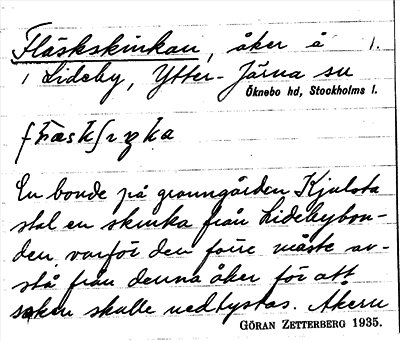 Fläskskinkan, åker å 1.
i Lideby, Ytter-Järna sn
Öknebo hd, Stockholms l.
En bonde på granngården Kjulsta
stal en skinka från Lidebybon-
den, varför den förre måste av-
stå från denna åker för att
saken skulle nedtystas. Åkern
GÖRAN ZETTERBERG 1935.